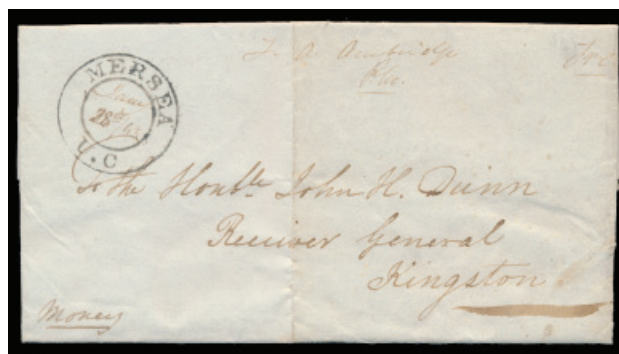 Free
MERSEA
Jany
28th
U.C
To the Honble John H. Dunn
Receiver General
Kingston
Money